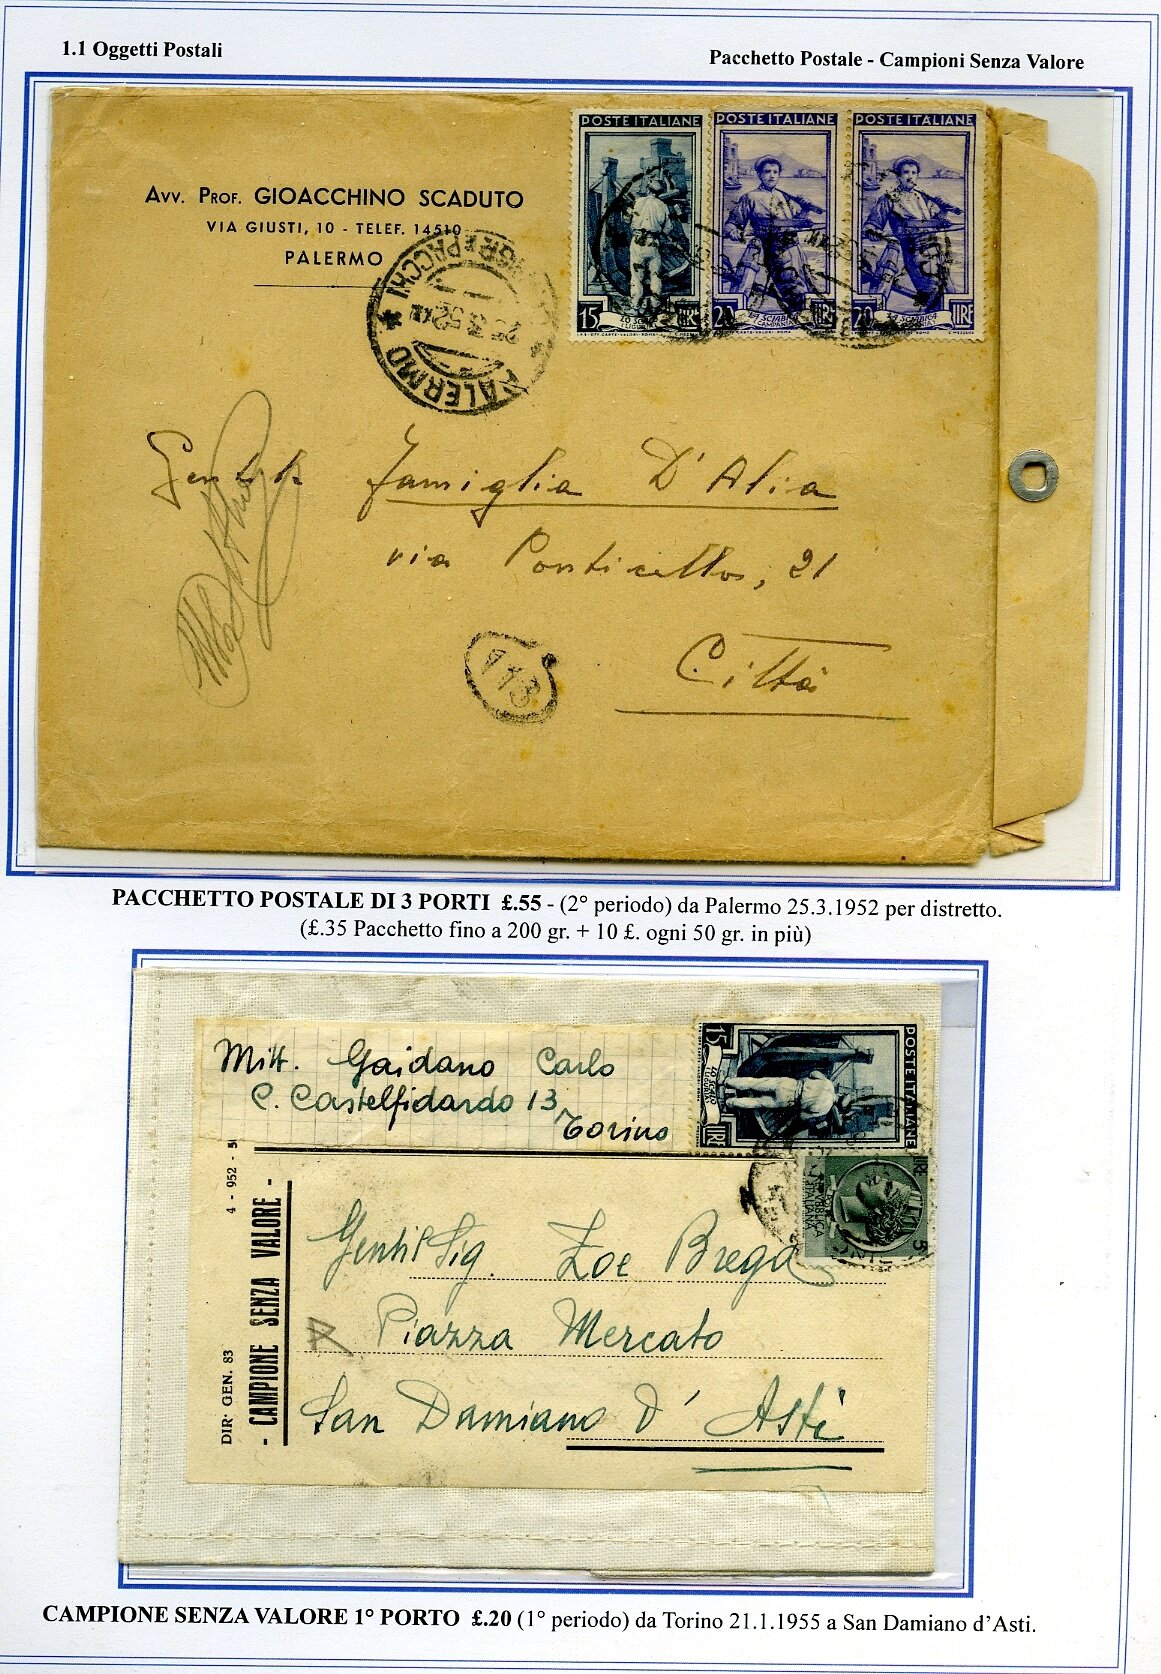 1.1 Oggetti Postali
Pacchetto Postale - Campioni Senza Valore
AVV. PROF. GIOACCHINO SCADUTO
VIA GIUSTI, 10 - TELEF. 14510
PALERMO
POSTE ITALIANE
15 LIRE
POSTE ITALIANE
20 LIRE
POSTE ITALIANE
20 LIRE
PALERMO
25.3.52
Famiglia D'Alia
via Ponticello, 21
Città
113
PACCHETTO POSTALE DI 3 PORTI £.55 - (2° periodo) da Palermo 25.3.1952 per distretto.
(£.35 Pacchetto fino a 200 gr. + 10 £. ogni 50 gr. in più)
Mitt. Gaidano Carlo
C. Castelfidardo 13
Torino
POSTE ITALIANE
15 LIRE
LO SCAFO
LIGURIA
REPUBBLICA
ITALIANA
LIRE 5
DIR. GEN. 83
4 - 952 -
- CAMPIONE SENZA VALORE -
Gentil Sig. Zoe Brega
Piazza Mercato
San Damiano d'Asti
CAMPIONE SENZA VALORE 1° PORTO £.20 (1° periodo) da Torino 21.1.1955 a San Damiano d'Asti.